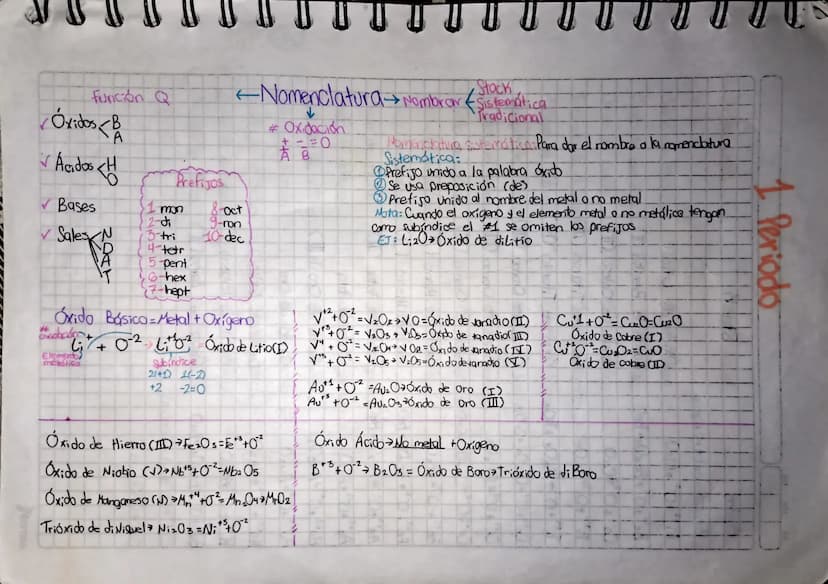 Función Q
←Nomenclatura→Nombrar
Stock
Sistemática
Tradicional
# Oxidación
+ - =0
A B
✓Óxidos<B
A
✓Ácidos<H
O
✓Bases
✓Sales
N
D
A
T
Prefijos
1-mon
2-di
3-tri
4-tetr
5-pent
6-hex
7-hept
8-oct
9-non
10-dec
Nomenclatura sistemática: Para dar el nombre a la nomenclatura
Sistemática:
①Prefijo unido a la palabra óxido
②Se usa preposición (de)
③Prefijo unido al nombre del metal o no metal
Nota: Cuando el oxígeno y el elemento metal o no metálico tengan
como subíndice el #1 se omiten los prefijos.
EJ: Li2O→Óxido de diLitio
1 Periodo
Óxido Básico=Metal+Oxígeno
# oxidación
Li + O⁻² → Li₂⁺¹O⁻² Óxido de Litio(I)
Elemento metálico
subíndice
2(+1) 1(-2)
+2 -2=0
V⁺²+O⁻²=V₂O₂→VO=Óxido de vanadio(II)
V⁺³+O⁻²=V₂O₃→V₂O₃=Óxido de vanadio(III)
V⁺⁴+O⁻²=V₂O₄→VO₂=Óxido de vanadio(IV)
V⁺⁵+O⁻²=V₂O₅→V₂O₅=Óxido de vanadio(V)
Au⁺¹+O⁻²=Au₂O→Óxido de Oro (I)
Au⁺³+O⁻²=Au₂O₃→Óxido de oro (III)
Cu⁺¹+O⁻²=Cu₂O=Cu₂O
Óxido de Cobre(I)
Cu⁺²O⁻²=Cu₂O₂=CuO
Óxido de cobre(II)
Óxido de Hierro(III)→Fe₂O₃=Fe⁺³+O⁻²
Óxido de Niobio(V)→Nb⁺⁵+O⁻²=Nb₂O₅
Óxido de Manganeso(IV)→Mn⁺⁴+O⁻²=Mn₂O₄→MnO₂
Trióxido de diNiquel→Ni₂O₃=Ni⁺³+O⁻²
Óxido Ácido→No metal +Oxígeno
B⁺³+O⁻²→B₂O₃=Óxido de Boro→Trióxido de diBoro